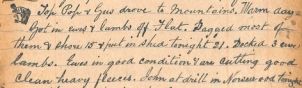 Top Pop & Gus drove to Mountains. Warm day
Got in ewes & lambs off Flat. Dagged most of
them & shore 15 & put in shed tonight 21. Docked 3 ewe
lambs. Ewes in good condition & are cutting good
Clean heavy fleeces. John at drill in Norsewood tonight